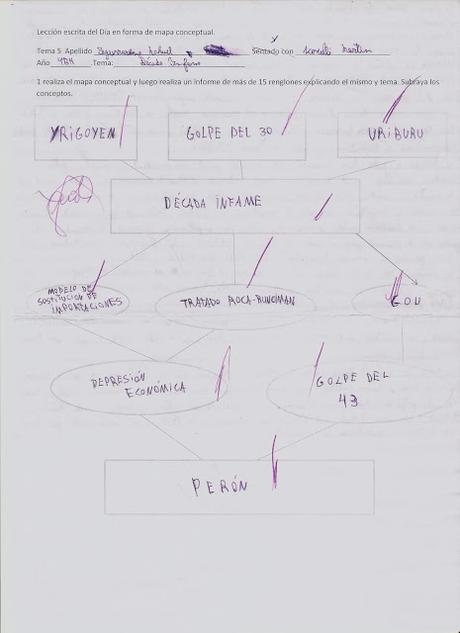 Lección escrita del Día en forma de mapa conceptual.
Tema 5 Apellido Sentado con Martin
Año Tema: Década Infame
1 realiza el mapa conceptual y luego realiza un informe de más de 15 renglones explicando el mismo y tema. Subraya los
conceptos.
YRIGOYEN
GOLPE DEL 30
URIBURU
DÉCADA INFAME
MODELO DE
SOSTITUCION DE
IMPORTACIONES
TRATADO ROCA-RUNCIMAN
GOU
DEPRESIÓN
ECONÓMICA
GOLPE DEL
43
PERÓN